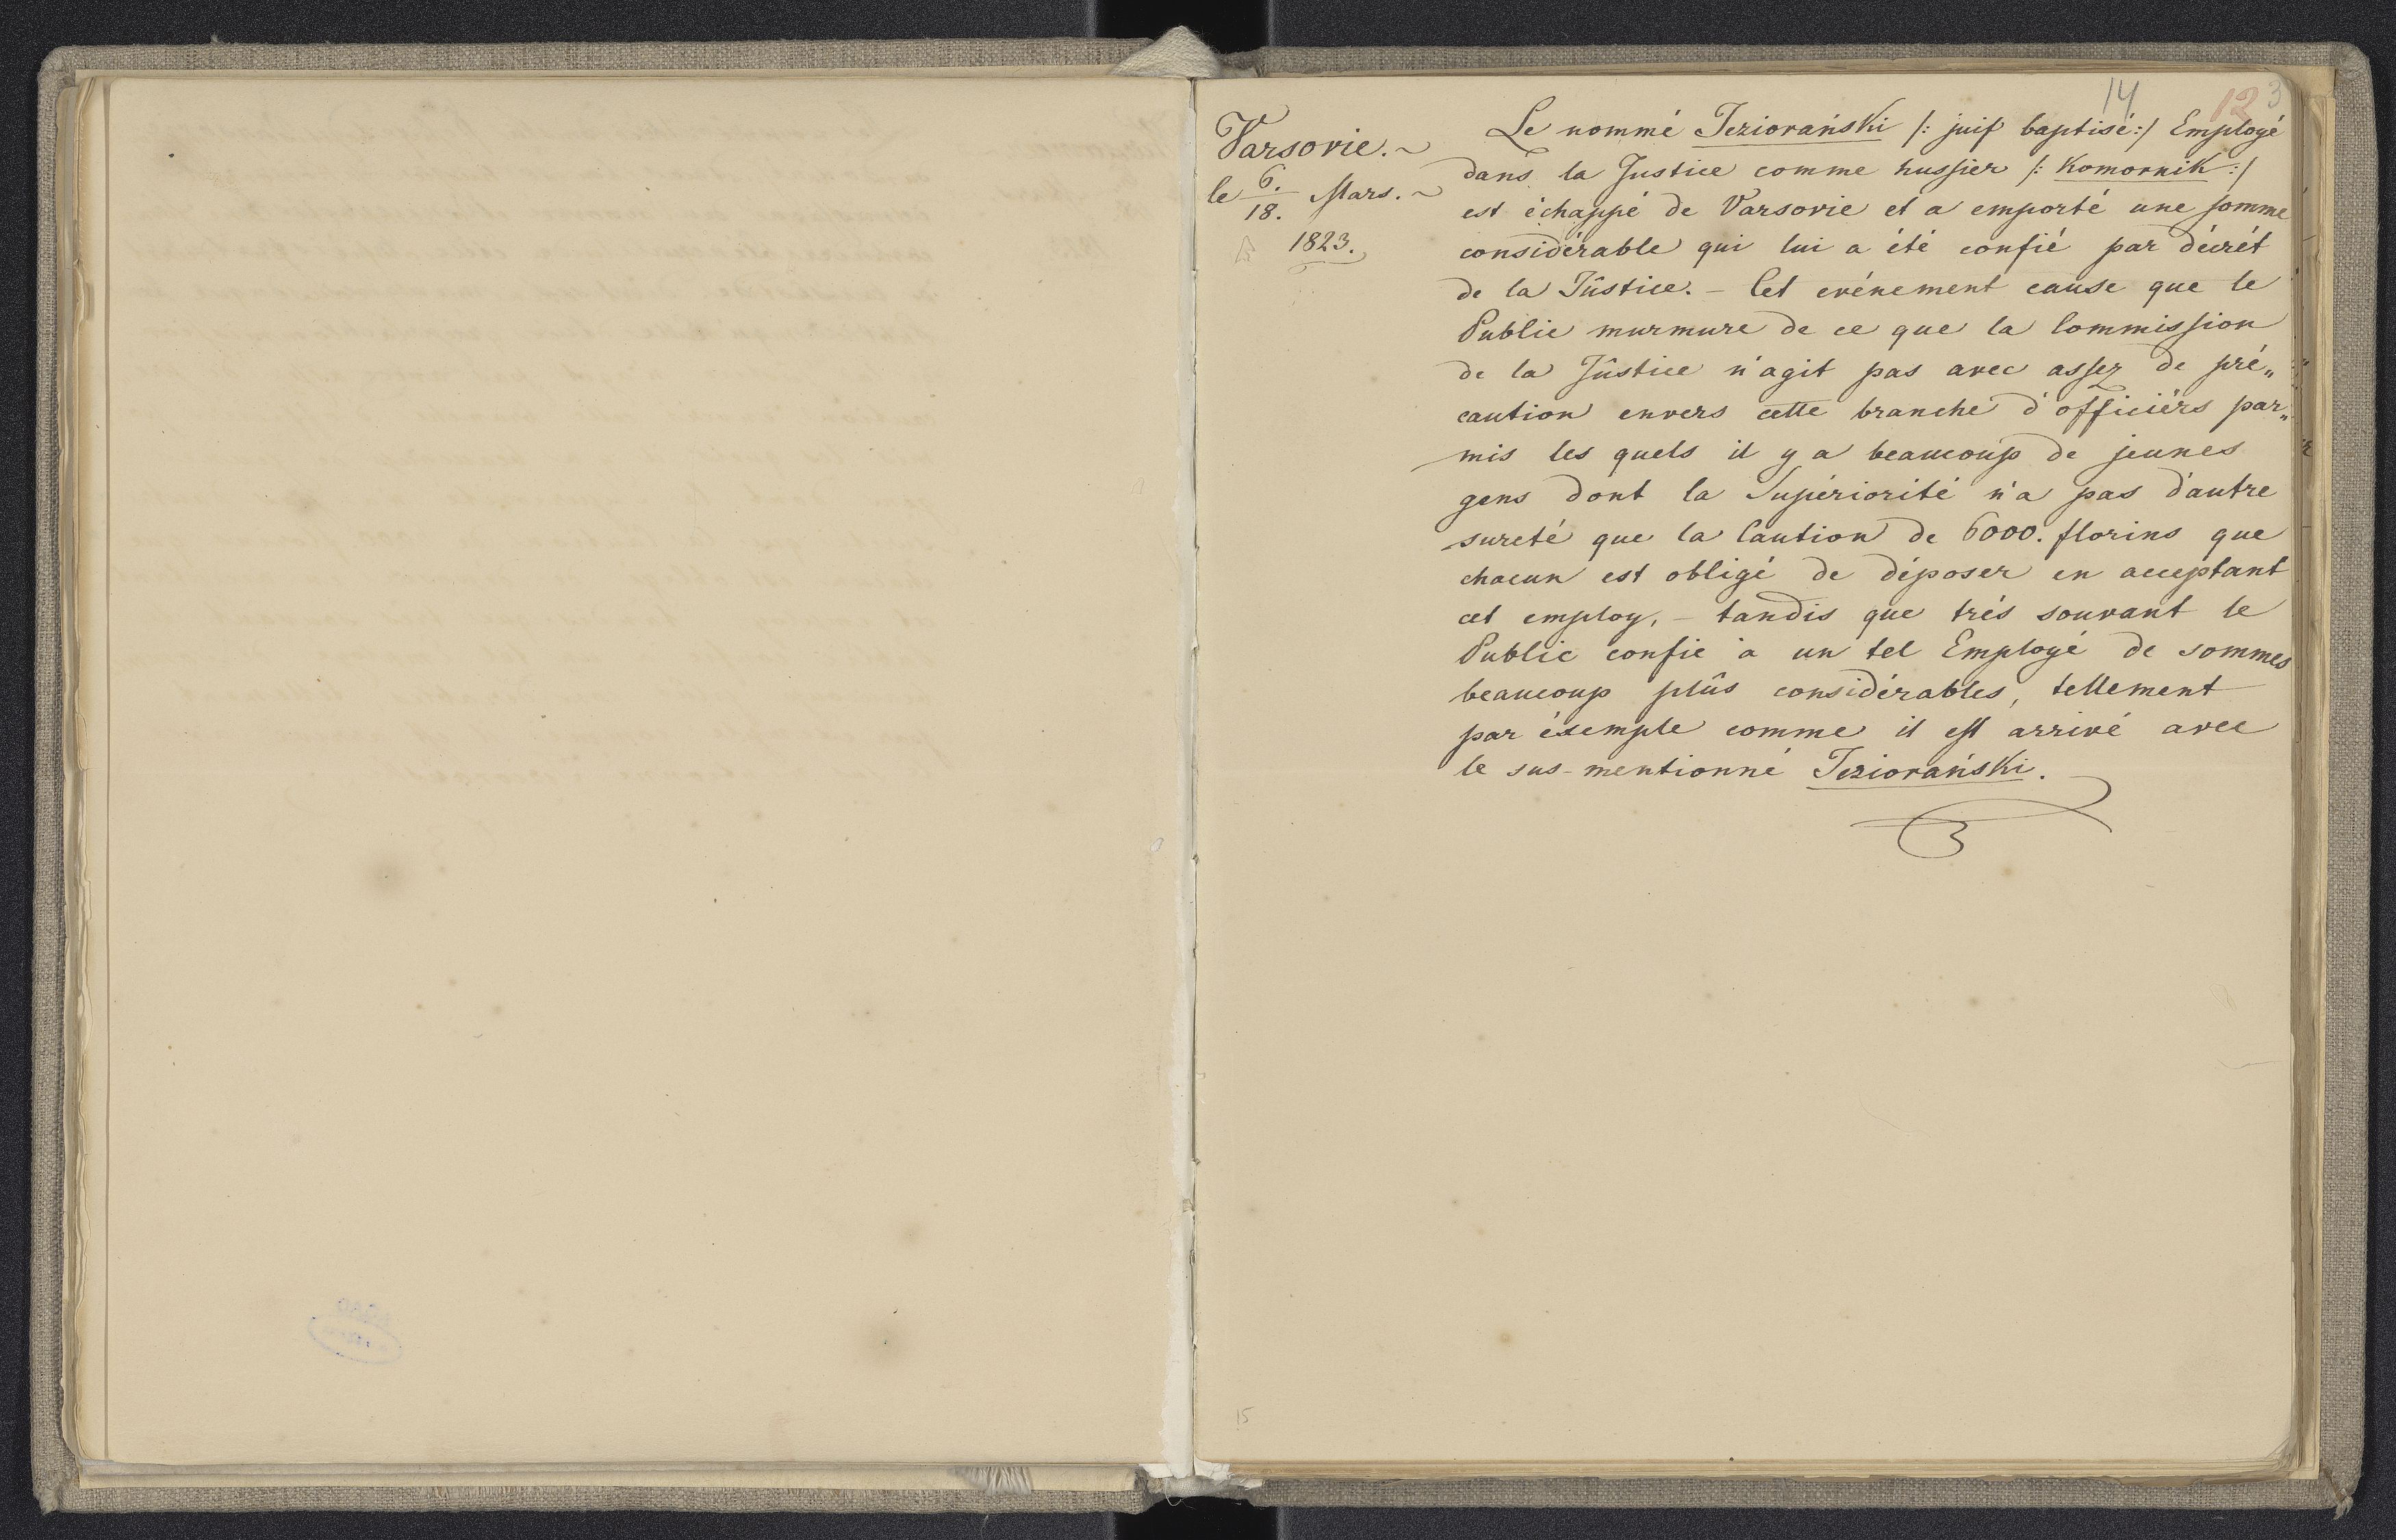 14 12 3
Varsovie.~
le 6./18. Mars.~
1823.
Le nommé Jeziorański /: juif baptisé :/ Employé
dans la Justice comme hussier /: Komornik :/
est échappé de Varsovie et a emporté une somme
considérable qui lui a été confié par décrét
de la Jûstice. – Cet evénement cause que le
Public murmure de ce que la Commission
de la Jûstice n'agit pas avec assez de pré„
caution envers cette branche d'officiérs par„
mis les quels il y a beaucoup de jeunes
gens dont la Supériorité n'a pas d'autre
sureté que la Caution de 6000. florins que
chacun est obligé de déposer en acceptant
cet employ, – tandis que trés souvant le
Public confie à un tel Employé de sommes
beaucoup plûs considérables, tellement
par éxemple comme il est arrivé avec
le sus-mentionné Jeziorański.
15